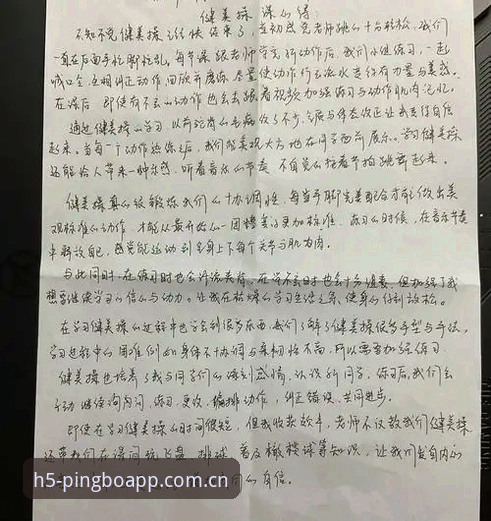 健美操课心得:
不知不觉健美操之旅快结束了,起初感觉老师跳的十分轻松,我们
一直在后面手忙脚乱,每节课跟老师学完新动作后,我们小组练习,一起
喊口令,互相纠正动作,由放开磨练,尽量使动作行云流水变得有力量与美感。
在课后,即使有不会的动作也会去跟着视频加强练习与动作肌肉记忆。
通过健美操的学习,以前驼背的毛病改了不少,气质与体态改正让我变得自信
起来。当每一个动作熟练之后,我们能美观大方地在同学面前展示。学习健美操
还能给人带来一种乐感,听着音乐的节奏,不自觉的抱着节拍跳舞起来。
健美操真的很锻炼我们的协调性,每当手脚完美配合才能做出美
观标准的动作,才能从最开始的一团糟变的更加标准。练习的时候,在音乐节奏
中释放自己,感觉能运动到全身上下每个关节与肌肉。
与此同时,在练习时也会汗流夹背,在学不会时也会十分沮丧,但加强了我
想要继续学习的信心与动力。让我在枯燥的学习生涯之余,使身心得到放松。
在学习健美操的过程中也学会到很多东西,我们了解了健美操很多手型与手法,
学习过程中的困难例如身体不协调与柔韧性不高,所以需要加强练习
健美操也培养了我与同学们的深刻感情,认识新同学,练习后,我们会
主动继续询问,练习,更改,编排动作,纠正错误,共同进步。
即使在学习健美操的时间很短,但我收获颇丰,老师不仅教我们健美操
还带我们在课间玩飞盘、排球,普及橄榄球等知识,让我们发自内心
的自信。
h5-pingboapp.com.cn